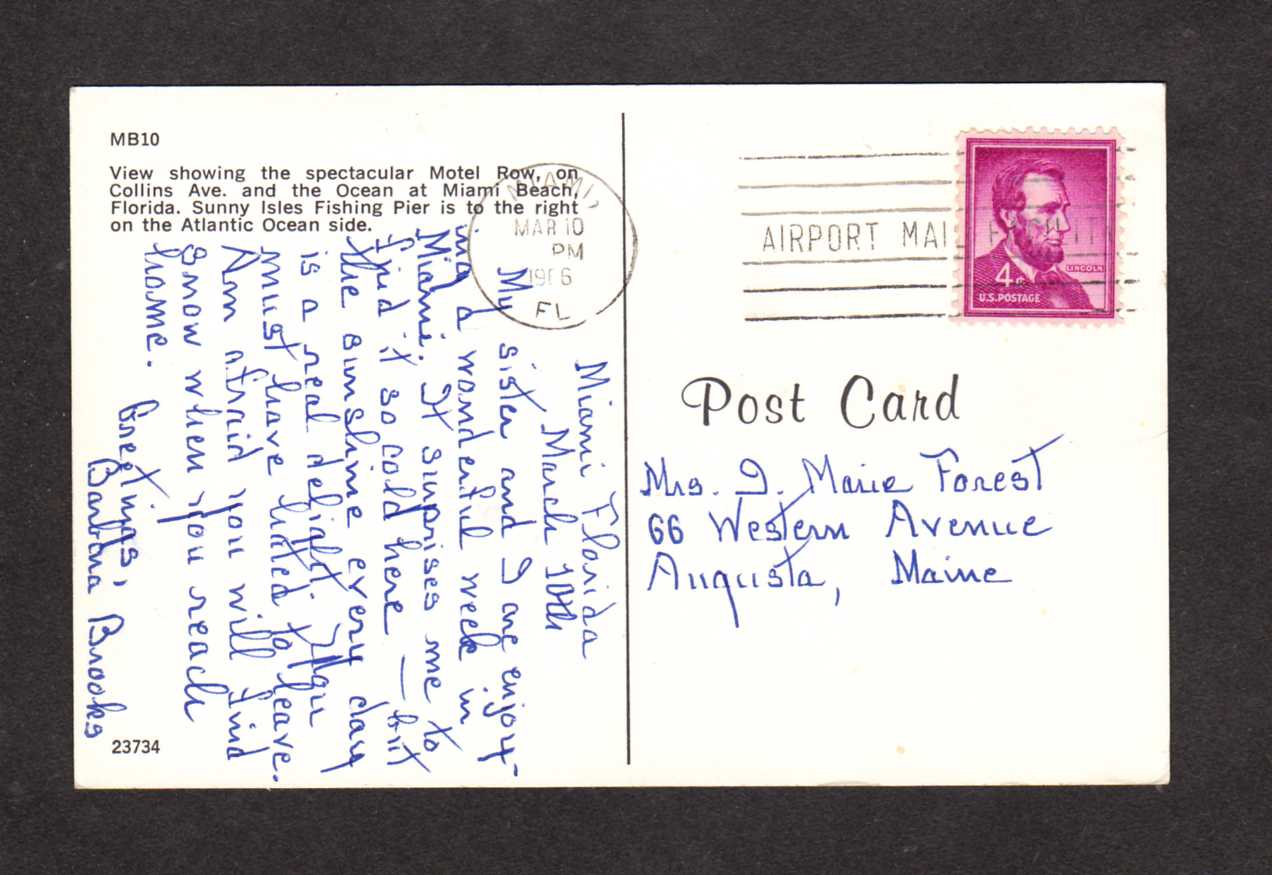 MB10
View showing the spectacular Motel Row, on
Collins Ave. and the Ocean at Miami Beach,
Florida. Sunny Isles Fishing Pier is to the right
on the Atlantic Ocean side.
Miami Florida
March 10th
My sister and I are enjoy-
ing a wonderful week in
Miami. It surprises me to
find it so cold here — but
the sunshine every day
is a real delight. You
must have hated to leave.
Am afraid you will find
snow when you reach
home.
Greetings,
Barbara Brooks
23734
MIAMI,
MAR 10
PM
FL
AIRPORT MAIL
LINCOLN
4¢
U.S. POSTAGE
Post Card
Mrs. I. Marie Forest
66 Western Avenue
Augusta, Maine